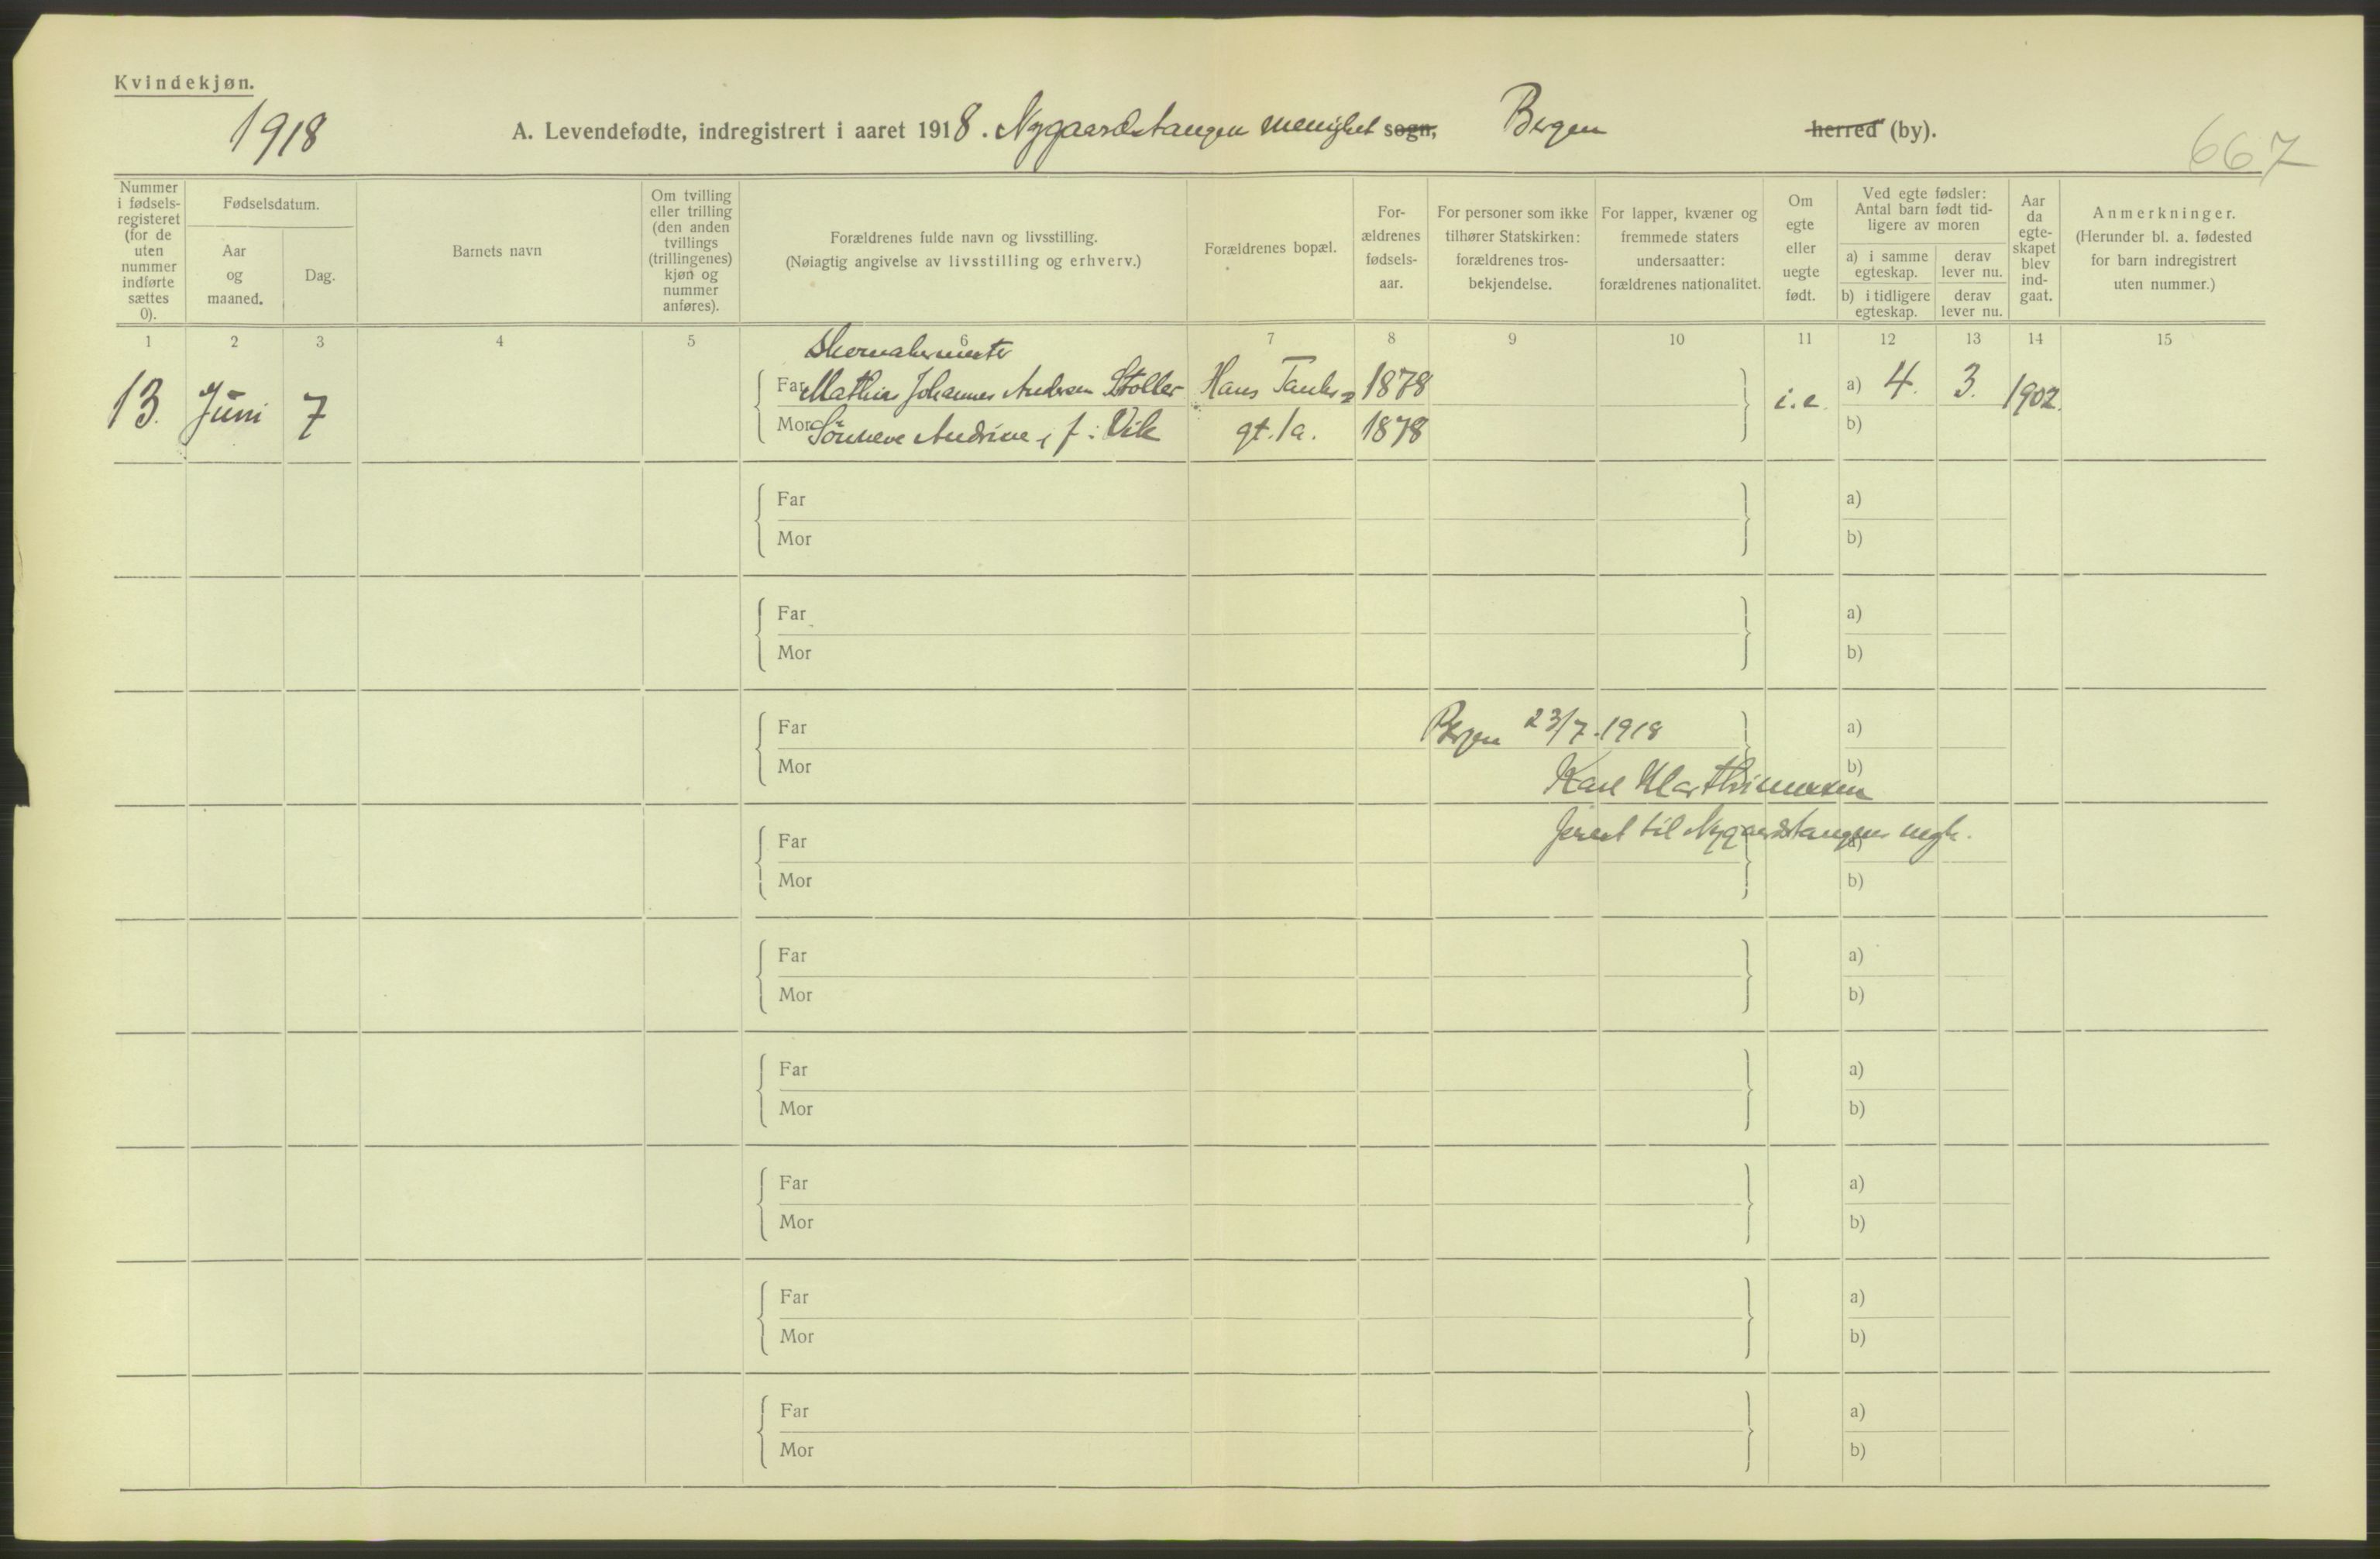 Kvindekjøn.
1918
A. Levendefødte, indregistrert i aaret 1918. Nygaardstangen menighet sogn, Bergen herred (by).
667
Nummer i fødselsregisteret (for de uten nummer indførte sættes 0).
Fødselsdatum.
Aar og maaned.
Dag.
Barnets navn
Om tvilling eller trilling (den anden tvillings (trillingenes) kjøn og nummer anføres).
Forældrenes fulde navn og livsstilling.
(Nøiagtig angivelse av livsstilling og erhverv.)
Forældrenes bopæl.
Forældrenes fødselsaar.
For personer som ikke tilhører Statskirken: forældrenes trosbekjendelse.
For lapper, kvæner og fremmede staters undersaatter: forældrenes nationalitet.
Om egte eller uegte født.
Ved egte fødsler: Antal barn født tidligere av moren
a) i samme egteskap.
derav lever nu.
b) i tidligere egteskap.
derav lever nu.
Aar da egteskapet blev indgaat.
Anmerkninger.
(Herunder bl. a. fødested for barn indregistrert uten nummer.)
1 2 3 4 5 6 7 8 9 10 11 12 13 14 15
Skomakermester
13. Juni 7 Far Mathias Johannes Andersen Stoller Hans Tanks= 1878 i. e. a) 4. 3. 1902.
Mor Sönneve Andrine, f: Vik gt. 1a. 1878 b)
Far a)
Mor b)
Far a)
Mor b)
Far Bergen 23/7. 1918 a)
Mor b)
Karl Marthinussen
prest til Nygaardstangens mgh.
Far a)
Mor b)
Far a)
Mor b)
Far a)
Mor b)
Far a)
Mor b)
Far a)
Mor b)
Far a)
Mor b)